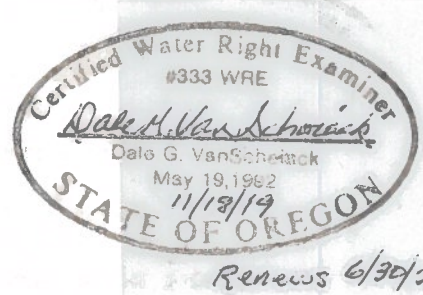 Certified Water Right Examiner
#333 WRE
Dale G. VanSchoiack
May 19, 1992
11/18/19
STATE OF OREGON
Renews 6/30/